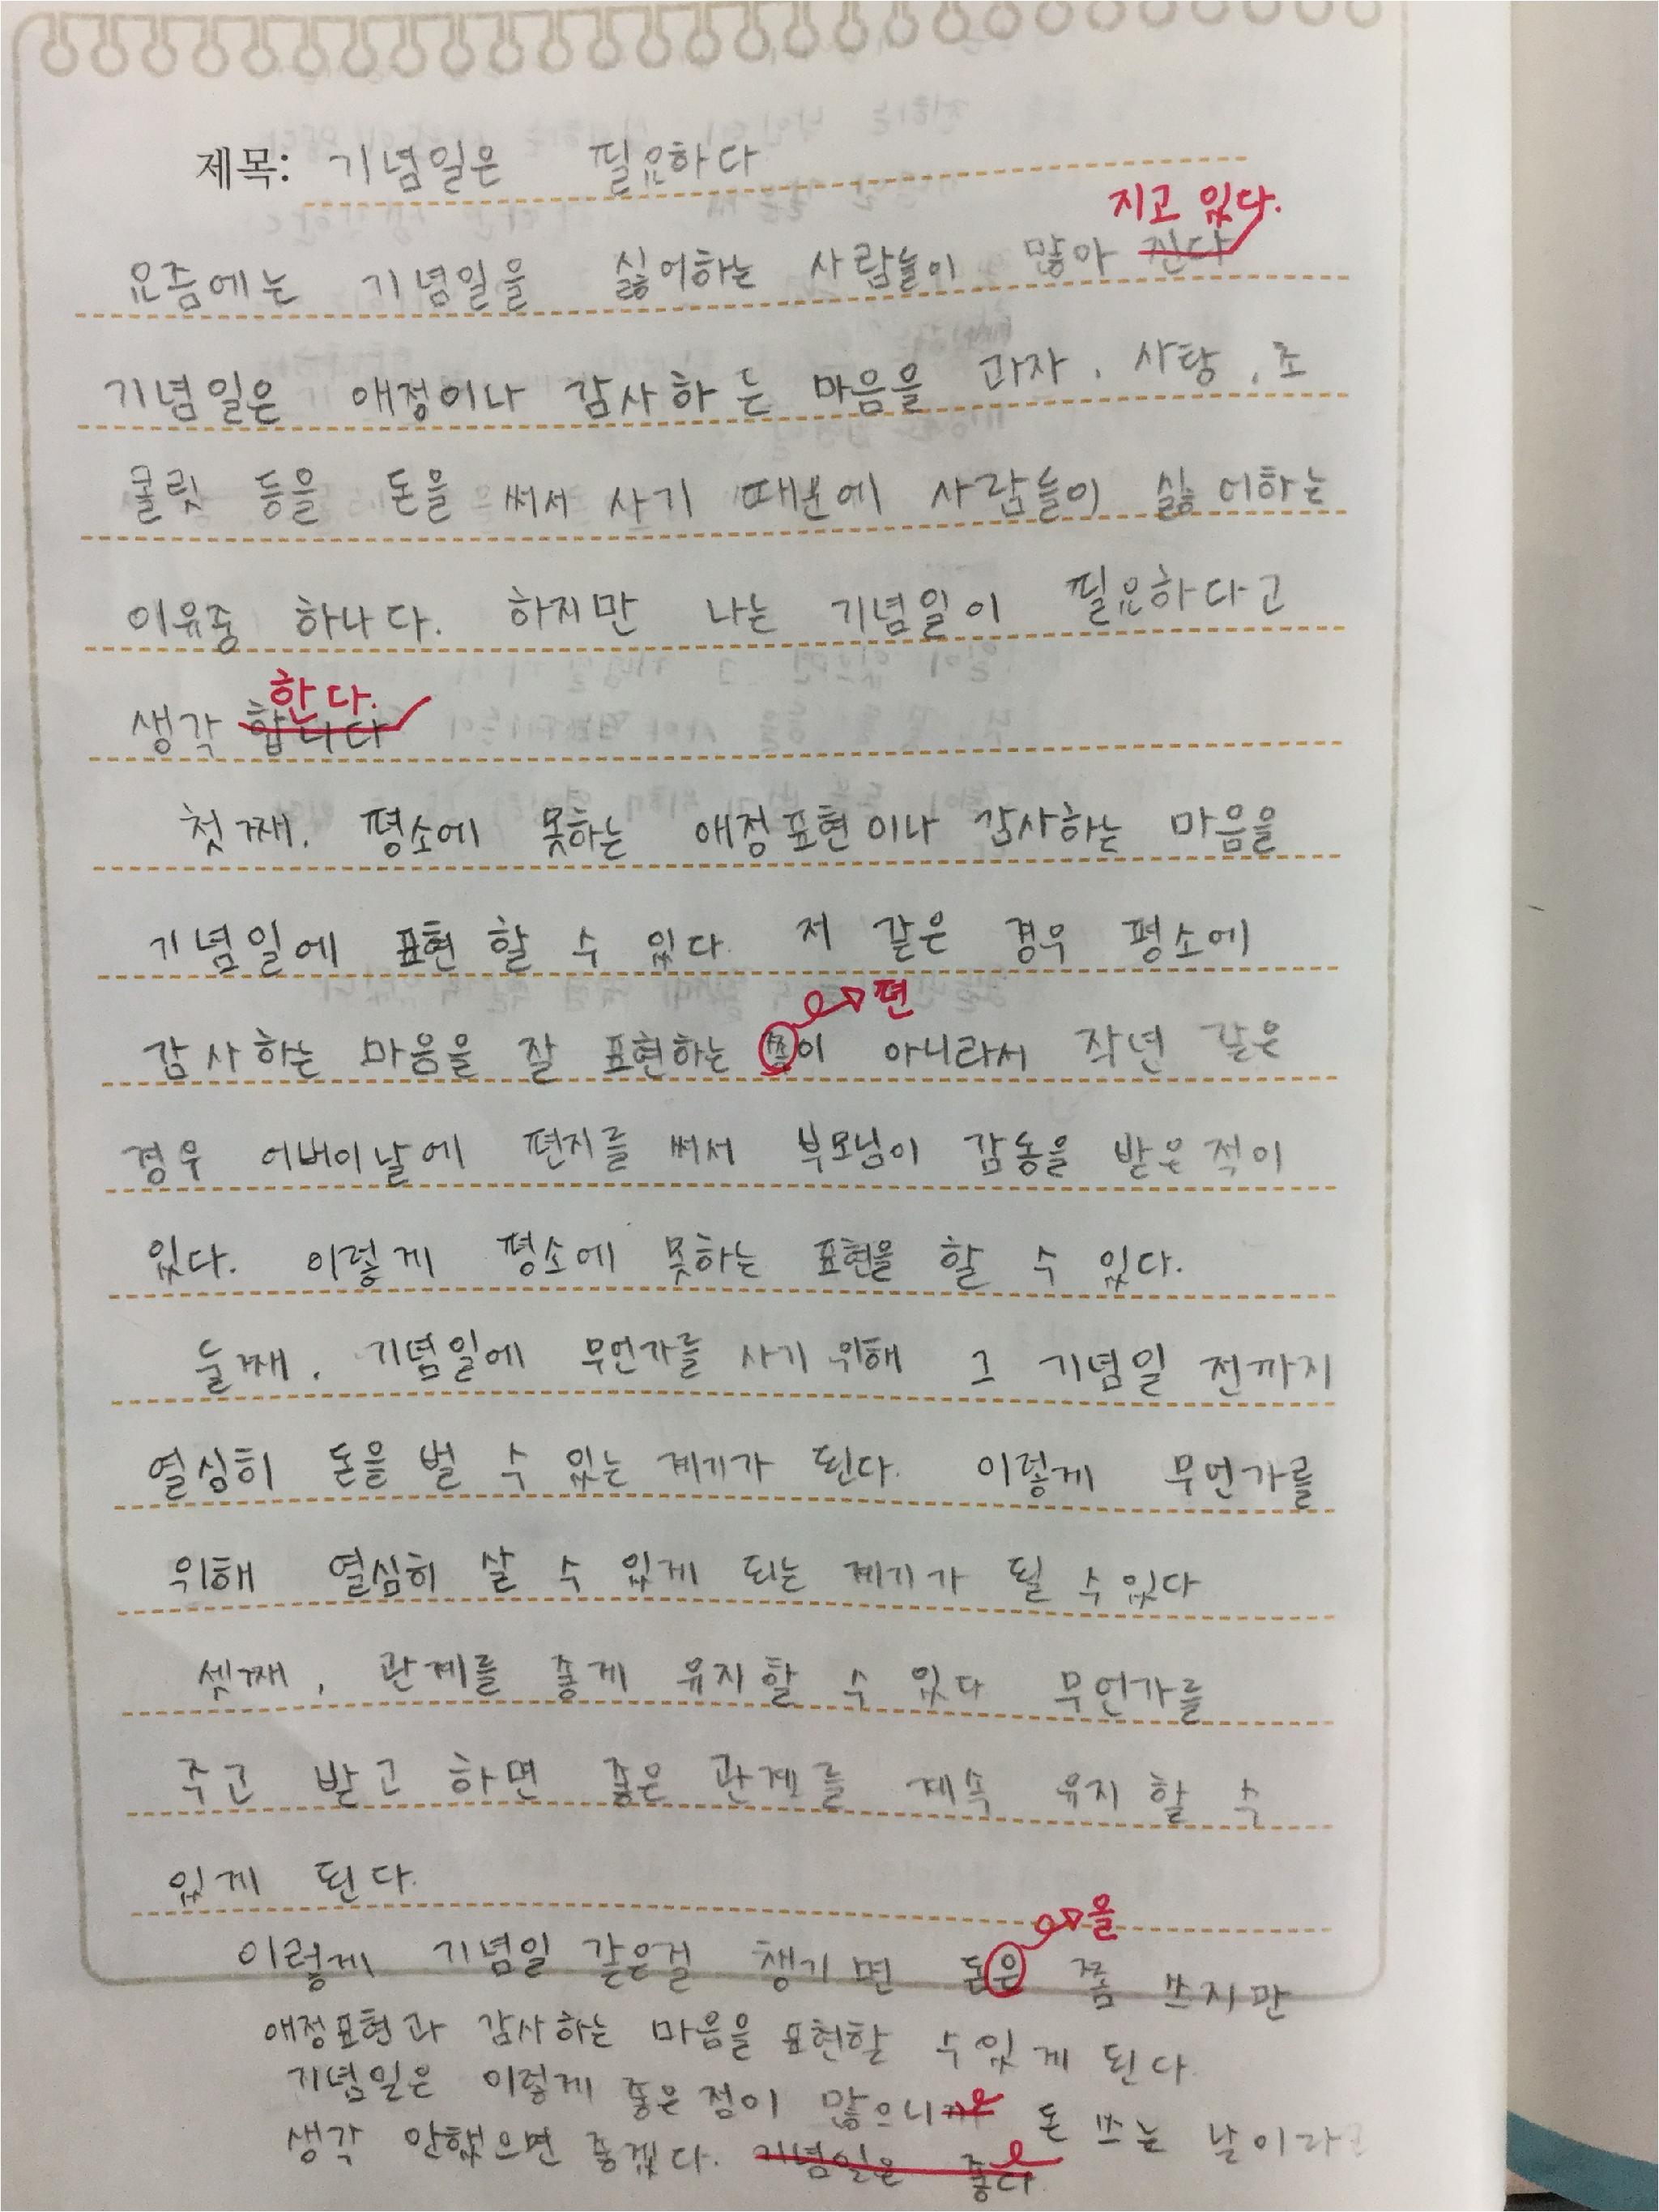 제목: 기념일은 필요하다
지고 있다.
요즘에는 기념일을 싫어하는 사람들이 많아 진다
기념일은 애정이나 감사하는 마음을 과자, 사탕, 초
콜릿 등을 돈을 써서 사기 때문에 사람들이 싫어하는
이유중 하나다. 하지만 나는 기념일이 필요하다고
한다.
생각 합니다
첫째, 평소에 못하는 애정표현이나 감사하는 마음을
기념일에 표현 할 수 있다. 저 같은 경우 평소에
편
감사하는 마음을 잘 표현하는 쪽이 아니라서 작년 같은
경우 어버이날에 편지를 써서 부모님이 감동을 받은 적이
있다. 이렇게 평소에 못하는 표현을 할 수 있다.
둘째, 기념일에 무언가를 사기 위해 그 기념일 전까지
열심히 돈을 벌 수 있는 계기가 된다. 이렇게 무언가를
위해 열심히 살 수 있게 되는 계기가 될 수 있다
셋째, 관계를 좋게 유지할 수 있다 무언가를
주고 받고 하면 좋은 관계를 계속 유지 할 수
있게 된다.
을
이렇게 기념일 같은걸 챙기면 돈은 쫌 쓰지만
애정표현과 감사하는 마음을 표현할 수있게 된다.
기념일은 이렇게 좋은점이 많으니까 돈 쓰는 날이라고
생각 안했으면 좋겠다. 기념일은 좋다